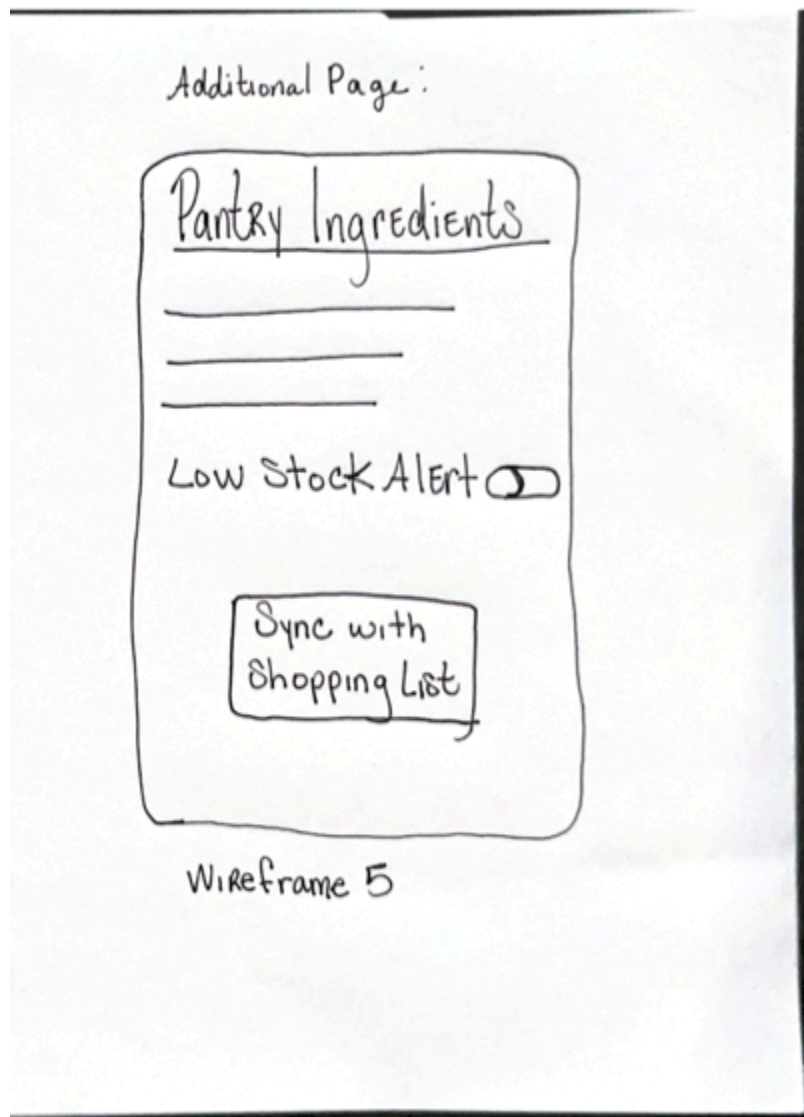 Additional Page:
Pantry Ingredients
Low Stock Alert
Sync with
Shopping List
Wireframe 5